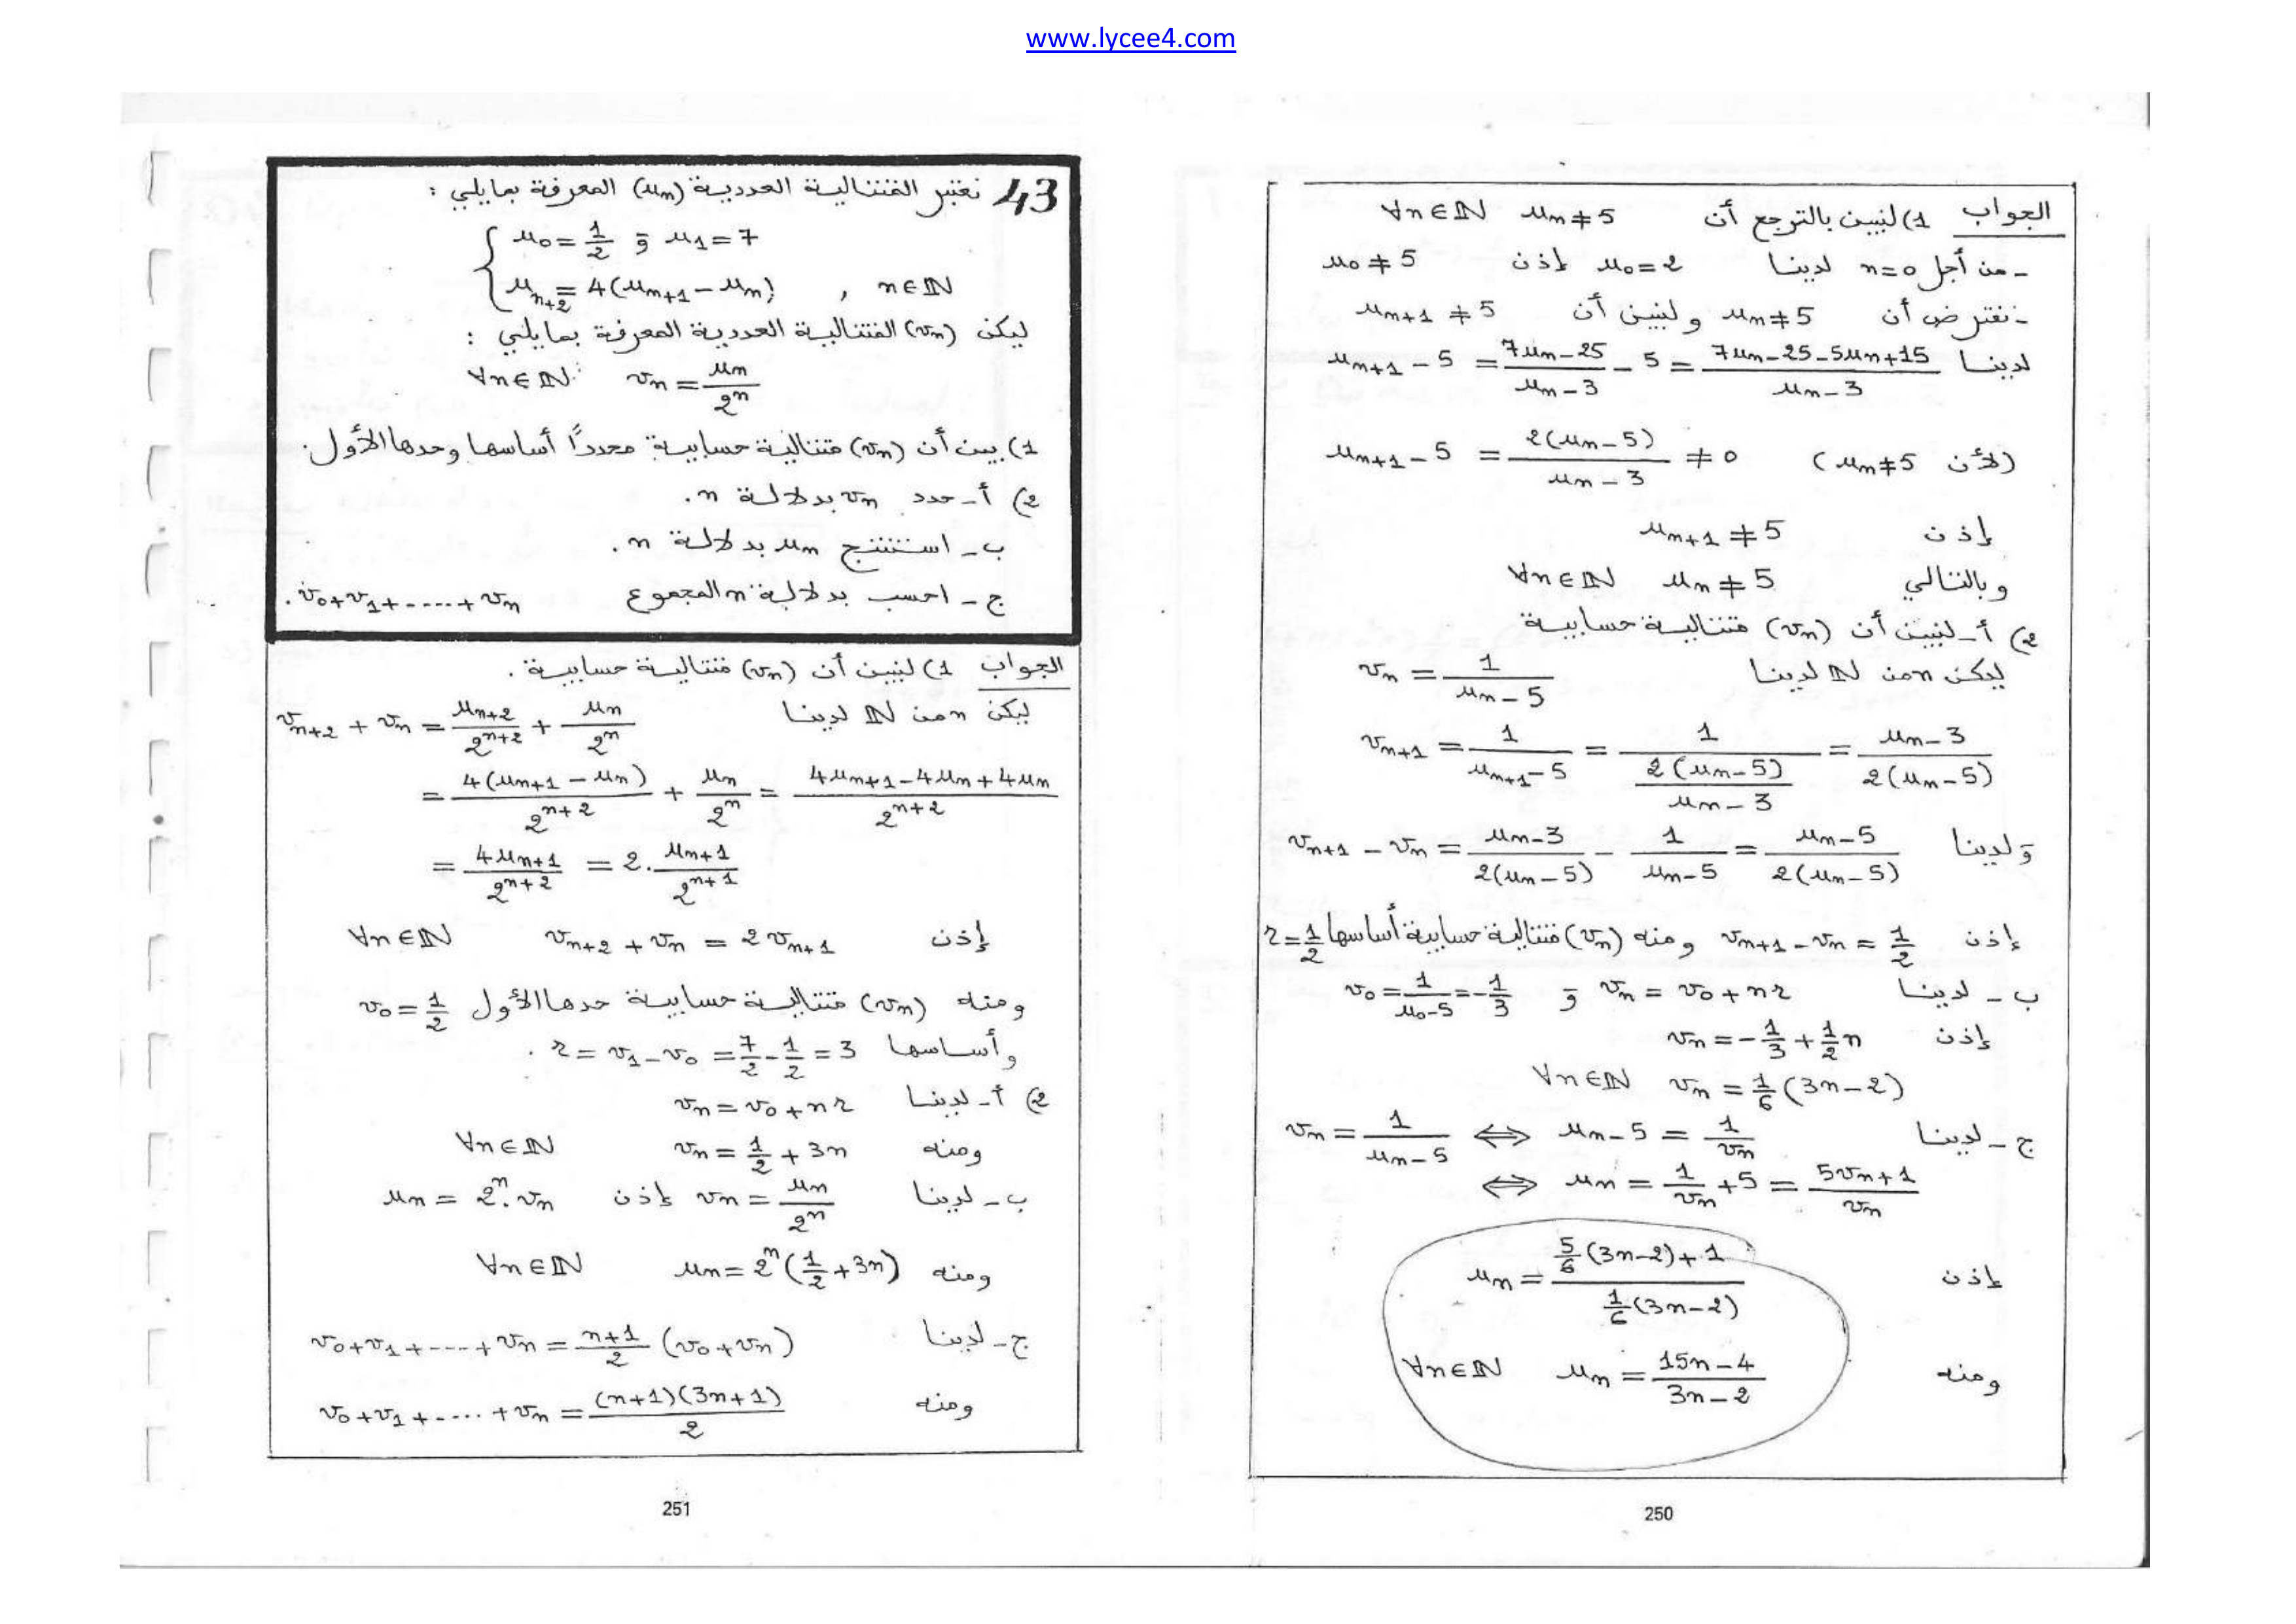 www.lycee4.com
الجواب 1) لنبين بالترجع أن u_n ≠ 5 ∀n∈ℕ
- من أجل n=0 لدينا u_0=2 إذن u_0 ≠ 5
- نفترض أن u_n ≠ 5 ولنبين أن u_{n+1} ≠ 5
لدينا u_{n+1} - 5 = (7u_n - 25)/(u_n - 3) - 5 = (7u_n - 25 - 5u_n + 15)/(u_n - 3)
u_{n+1} - 5 = 2(u_n - 5)/(u_n - 3) ≠ 0 (لأن u_n ≠ 5)
إذن u_{n+1} ≠ 5
وبالتالي u_n ≠ 5 ∀n∈ℕ
2) أ- لنبين أن (v_n) متتالية حسابية
ليكن n من ℕ لدينا v_n = 1/(u_n - 5)
v_{n+1} = 1/(u_{n+1} - 5) = 1/(2(u_n - 5)/(u_n - 3)) = (u_n - 3)/(2(u_n - 5))
ولدينا v_{n+1} - v_n = (u_n - 3)/(2(u_n - 5)) - 1/(u_n - 5) = (u_n - 5)/(2(u_n - 5))
إذن v_{n+1} - v_n = 1/2 ومنه (v_n) متتالية حسابية أساسها r = 1/2
ب- لدينا v_n = v_0 + nr و v_0 = 1/(u_0 - 5) = -1/3
إذن v_n = -1/3 + 1/2 n
∀n∈ℕ v_n = 1/6 (3n - 2)
ج- لدينا v_n = 1/(u_n - 5) ⟺ u_n - 5 = 1/v_n
⟺ u_n = 1/v_n + 5 = (5v_n + 1)/v_n
إذن u_n = (5/6 (3n-2) + 1)/(1/6 (3n-2))
ومنه u_n = (15n - 4)/(3n - 2) ∀n∈ℕ
250
43 نعتبر المتتالية العددية (u_n) المعرفة بمايلي :
u_0 = 1/2 و u_1 = 7
u_{n+2} = 4(u_{n+1} - u_n) , n∈ℕ
ليكن (v_n) المتتالية العددية المعرفة بمايلي :
∀n∈ℕ v_n = u_n/2^n
1) بين أن (v_n) متتالية حسابية محدداً أساسها وحدها الأول.
2) أ- حدد v_n بدلالة n.
ب- استنتج u_n بدلالة n.
ج- احسب بدلالة n المجموع v_0+v_1+.....+v_n.
الجواب 1) لنبين أن (v_n) متتالية حسابية.
ليكن n من ℕ لدينا v_{n+2} + v_n = u_{n+2}/2^{n+2} + u_n/2^n
= 4(u_{n+1} - u_n)/2^{n+2} + u_n/2^n = (4u_{n+1} - 4u_n + 4u_n)/2^{n+2}
= 4u_{n+1}/2^{n+2} = 2.u_{n+1}/2^{n+1}
إذن v_{n+2} + v_n = 2v_{n+1} ∀n∈ℕ
ومنه (v_n) متتالية حسابية حدها الأول v_0 = 1/2
وأساسها r = v_1 - v_0 = 7/2 - 1/2 = 3.
2) أ- لدينا v_n = v_0 + nr
ومنه v_n = 1/2 + 3n ∀n∈ℕ
ب- لدينا v_n = u_n/2^n إذن u_n = 2^n.v_n
ومنه u_n = 2^n (1/2 + 3n) ∀n∈ℕ
ج- لدينا v_0+v_1+----+v_n = (n+1)/2 (v_0 + v_n)
ومنه v_0+v_1+.....+v_n = (n+1)(3n+1)/2
251